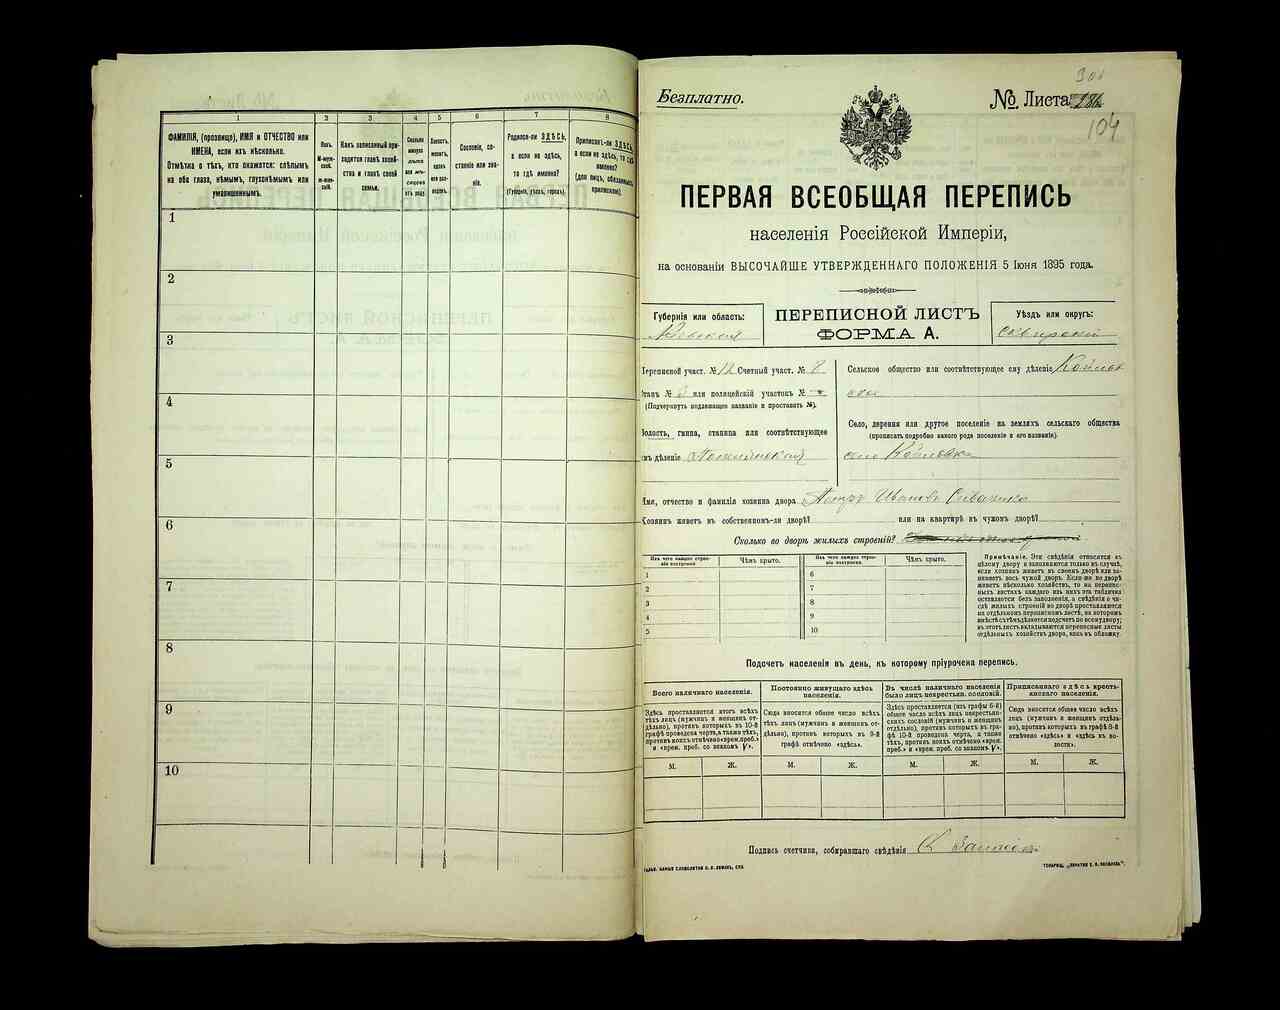 1
2
3
4
5
6
7
8
ФАМИЛІЯ, (прозвище), ИМЯ и ОТЧЕСТВО или
ИМЕНА, если ихъ нѣсколько.
Отмѣтка о тѣхъ, кто окажется: слѣпымъ
на оба глаза, нѣмымъ, глухонѣмымъ или
умалишеннымъ.
Полъ.
М-муж-
ской.
Ж-жен-
скій.
Какъ записанный при-
ходится главѣ хозяй-
ства и главѣ своей
семьи.
Сколько
минуло
лѣтъ
или мѣ-
сяцевъ
отъ роду.
Холостъ,
женатъ,
вдовъ
или раз-
веденъ.
Сословіе, со-
стояніе или зва-
ніе.
Родился-ли ЗДѢСЬ,
а если не здѣсь,
то гдѣ именно?
(Губернія, уѣздъ, городъ).
Приписанъ-ли ЗДѢСЬ,
а если не здѣсь, то гдѣ
именно?
(для лицъ, обязанныхъ
припискою).
1
2
3
4
5
6
7
8
9
10
Безплатно.
№ Листа
104
ПЕРВАЯ ВСЕОБЩАЯ ПЕРЕПИСЬ
населенія Россійской Имперіи,
на основаніи ВЫСОЧАЙШЕ УТВЕРЖДЕННАГО ПОЛОЖЕНІЯ 5 Іюня 1895 года.
Губернія или область:
Кіевская
ПЕРЕПИСНОЙ ЛИСТЪ
ФОРМА А.
Уѣздъ или округъ:
Сквирскій
Переписной участ. № 12 Счетный участ. № 8
Станъ № 3 или полицейскій участокъ №
(Подчеркнуть подлежащее названіе и проставить №).
Волость, гмина, станица или соотвѣтствующее
имъ дѣленіе
Сельское общество или соотвѣтствующее ему дѣленіе
Село, деревня или другое поселеніе на земляхъ сельскаго общества
(прописать подробно какого рода поселеніе и его названіе).
село
Имя, отчество и фамилія хозяина двора Петръ Ивановъ
Хозяинъ живетъ въ собственномъ-ли дворѣ? или на квартирѣ въ чужомъ дворѣ?
Сколько во дворѣ жилыхъ строеній?
Изъ чего каждое строе-
ніе построено
Чѣмъ крыто.
Изъ чего каждое строе-
ніе построено.
Чѣмъ крыто.
1
2
3
4
5
6
7
8
9
10
Примѣчаніе. Эти свѣдѣнія относятся къ
цѣлому двору и заполняются только въ случаѣ,
если хозяинъ живетъ въ своемъ дворѣ или за-
нимаетъ весь чужой дворъ. Если же во дворѣ
живетъ нѣсколько хозяйствъ, то на перепис-
ныхъ листахъ каждаго изъ нихъ эта табличка
оставляется безъ заполненія, а свѣдѣнія о чи-
слѣ жилыхъ строеній во дворѣ проставляются
на отдѣльномъ переписномъ листѣ, на которомъ
вмѣстѣ съ тѣмъ дѣлается подсчетъ по всему двору;
въ этотъ листъ вкладываются переписные листы
отдѣльныхъ хозяйствъ двора, какъ въ обложку.
Подсчетъ населенія въ день, къ которому пріурочена перепись.
Всего наличнаго населенія.
Здѣсь проставляется итогъ всѣхъ
тѣхъ лицъ (мужчинъ и женщинъ от-
дѣльно), противъ которыхъ въ 10-й
графѣ проведена черта, а также тѣхъ,
противъ коихъ отмѣчено «врем. преб.»
и «врем. преб. со знакомъ V».
Постоянно живущаго здѣсь
населенія.
Сюда вносится общее число всѣхъ
тѣхъ лицъ (мужчинъ и женщинъ от-
дѣльно), противъ которыхъ въ 9-й
графѣ отмѣчено «здѣсь».
Въ числѣ наличнаго населенія
было лицъ некрестьян. сословій.
Здѣсь проставляется (изъ графы 6-й)
общее число всѣхъ лицъ некрестьян-
скихъ сословій (мужчинъ и женщинъ
отдѣльно), противъ которыхъ въ гра-
фѣ 10-й проведена черта, а также
тѣхъ, противъ коихъ отмѣчено «врем.
преб.» и «врем. преб. со знакомъ V».
Приписаннаго здѣсь кресть-
янскаго населенія.
Сюда вносится общее число всѣхъ
лицъ (мужчинъ и женщинъ отдѣль-
но), противъ которыхъ въ графѣ 8-й
отмѣчено «здѣсь» и «здѣсь въ во-
лости».
М.
Ж.
М.
Ж.
М.
Ж.
М.
Ж.
Подпись счетчика, собиравшаго свѣдѣнія